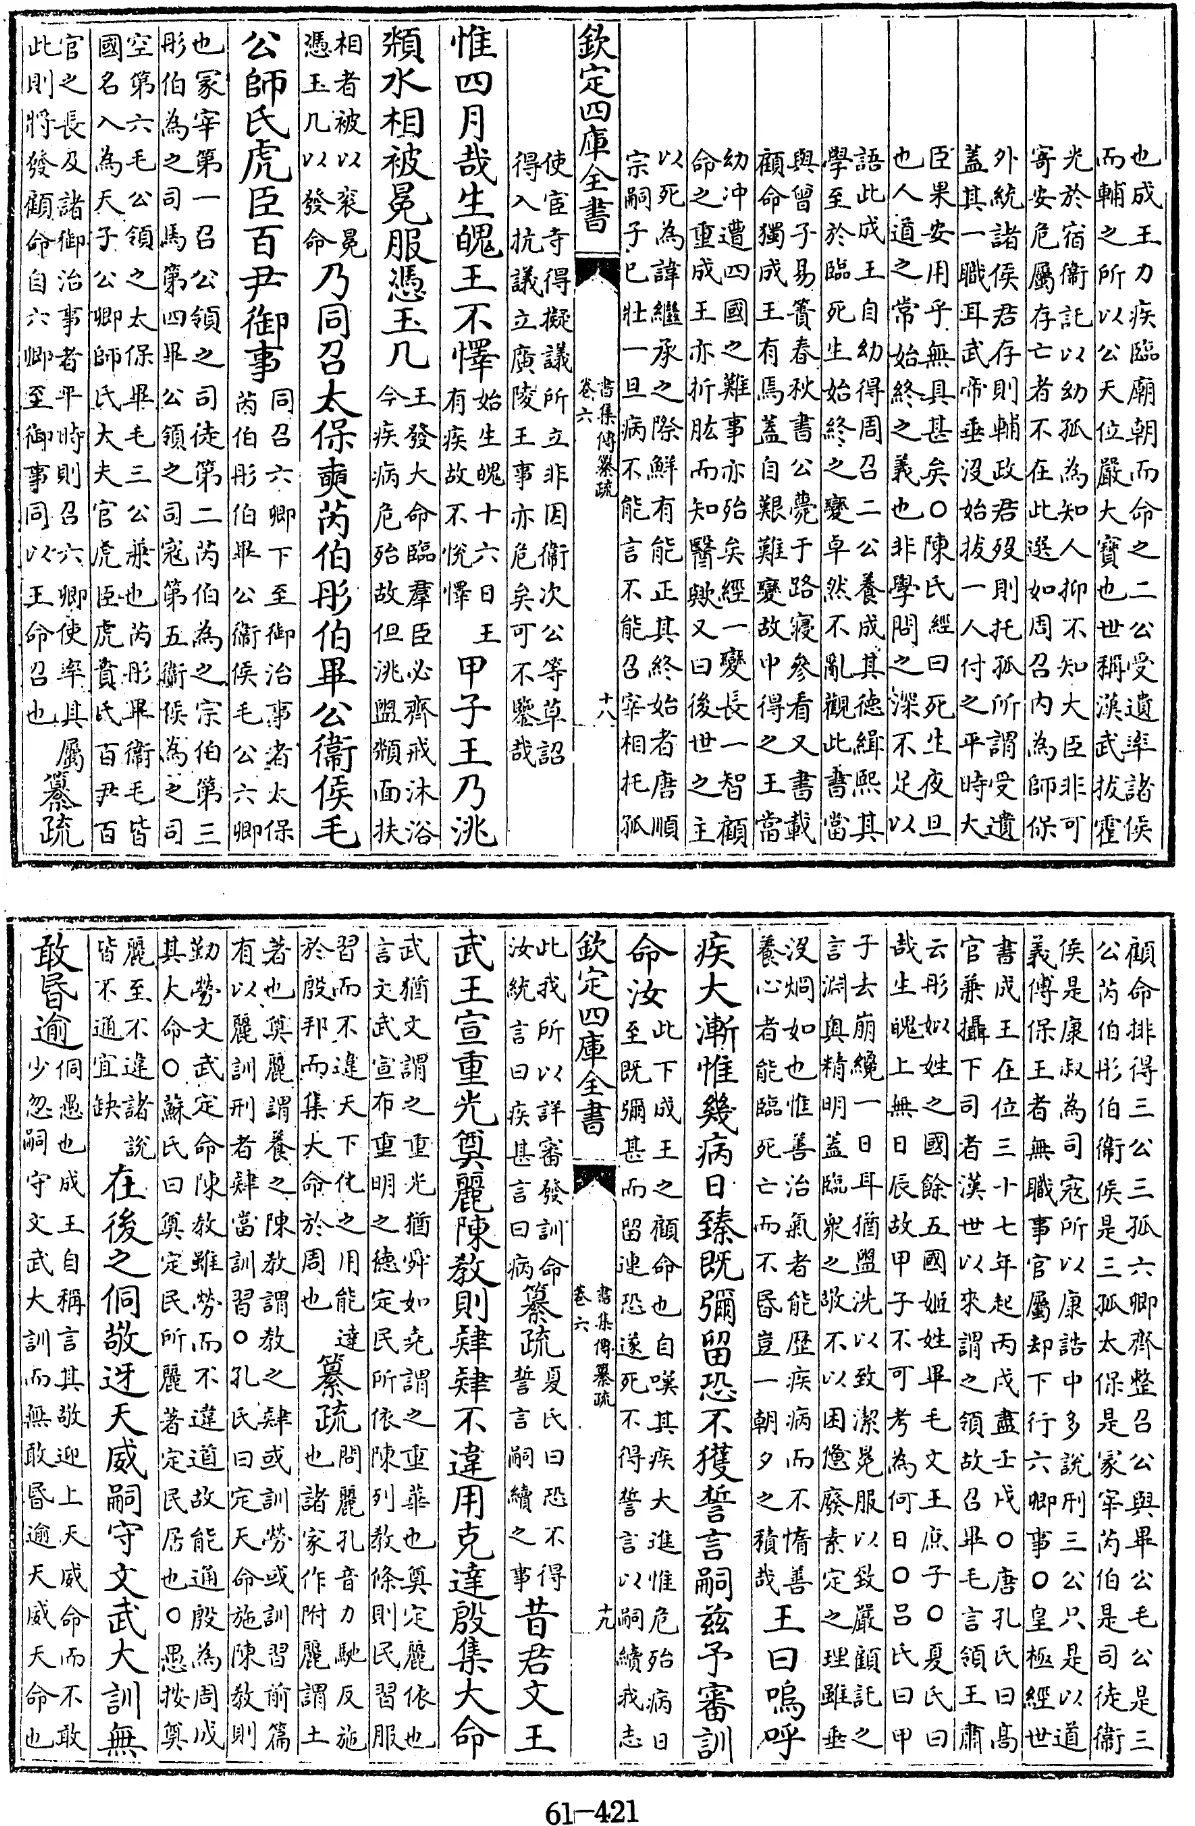 也成王力疾臨廟朝而命之二公受遺率諸侯
而輔之所以公天位嚴大寶也世稱漢武拔霍
光於宿衞託以幼孤為知人抑不知大臣非可
寄安危屬存亡者不在此選如周召内為師保
外統諸侯君存則輔政君歿則托孤所謂受遺
蓋其一職耳武帝垂沒始拔一人付之平時大
臣果安用乎無具甚矣○陳氏經曰死生夜旦
也人道之常始終之義也非學問之深不足以
語此成王自幼得周召二公養成其德緝熙其
學至於臨死生始終之變卓然不亂觀此書當
與曾子易簀春秋書公薨于路寢參看又書載
顧命獨成王有馬蓋自艱難變故中得之王當
幼冲遭四國之難事亦殆矣經一變長一智顧
命之重成王亦折肱而知醫歟又曰後世之主
以死為諱繼承之際鮮有能正其終始者唐順
宗嗣子已壯一旦病不能言不能召宰相托孤
欽定四庫全書
書集傳纂疏
卷六
十八
使宦寺得擬議所立非因衞次公等草詔
得入抗議立廣陵王事亦危矣可不鑒哉
惟四月哉生魄王不懌 始生魄十六日王有疾故不悅懌 甲子王乃洮
頮水相被冕服憑玉几 王發大命臨羣臣必齊戒沐浴今疾病危殆故但洮盥頮面扶
相者被以衮冕憑玉几以發命 乃同召太保奭芮伯彤伯畢公衞侯毛
公師氏虎臣百尹御事 同召六卿下至御治事者太保芮伯彤伯畢公衞侯毛公六卿
也冢宰第一召公領之司徒第二芮伯為之宗伯第三
彤伯為之司馬第四畢公領之司寇第五衞侯為之司
空第六毛公領之太保畢毛三公兼也芮彤畢衞毛皆
國名入為天子公卿師氏大夫官虎臣虎賁氏百尹百
官之長及諸御治事者平時則召六卿使率其屬
此則將發顧命自六卿至御事同以王命召也 纂疏
顧命排得三公三孤六卿齊整召公與畢公毛公是三
公芮伯彤伯衞侯是三孤太保是冢宰芮伯是司徒衞
侯是康叔為司寇所以康誥中多說刑三公只是以道
義傅保王者無職事官屬却下行六卿事○皇極經世
書成王在位三十七年起丙戌盡壬戌○唐孔氏曰高
官兼攝下司者漢世以來謂之領故召畢毛言領王肅
云彤姒姓之國餘五國姬姓畢毛文王庶子○夏氏曰
哉生魄上無日辰故甲子不可考為何日○吕氏曰甲
子去崩纔一日耳猶盥洗以致潔冕服以致嚴顧託之
言淵奥精明蓋臨衆之敬不以困憊廢素定之理雖垂
沒烱如也惟善治氣者能歷疾病而不惰善
養心者能臨死亡而不昏豈一朝夕之積哉 王曰嗚呼
疾大漸惟幾病日臻既彌留恐不獲誓言嗣兹予審訓
命汝 此下成王之顧命也自嘆其疾大進惟危殆病日至既彌甚而留連恐遂死不得誓言以嗣續我志
欽定四庫全書
書集傳纂疏
卷六
十九
此我所以詳審發訓命汝統言曰疾甚言曰病 纂疏 夏氏曰恐不得誓言嗣續之事 昔君文王
武王宣重光奠麗陳教則肄肄不違用克達殷集大命
武猶文謂之重光猶舜如堯謂之重華也奠定麗依也
言文武宣布重明之德定民所依陳列教條則民習服
習而不違天下化之用能達於殷邦而集大命於周也 纂疏 問麗孔音力馳反施也諸家作附麗謂土
著也奠麗謂養之陳教謂教之肄或訓勞或訓習前篇
有以麗訓刑者肄當訓習○孔氏曰定天命施陳教則
勤勞文武定命陳教雖勞而不違道故能通殷為周成
其大命○蘇氏曰奠定民所麗著定民居也○愚按奠
麗至不違諸說皆不通宜缺 在後之侗敬迓天威嗣守文武大訓無
敢昏逾 侗愚也成王自稱言其敬迎上天威命而不敢少忽嗣守文武大訓而無敢昏逾天威天命也
61—421